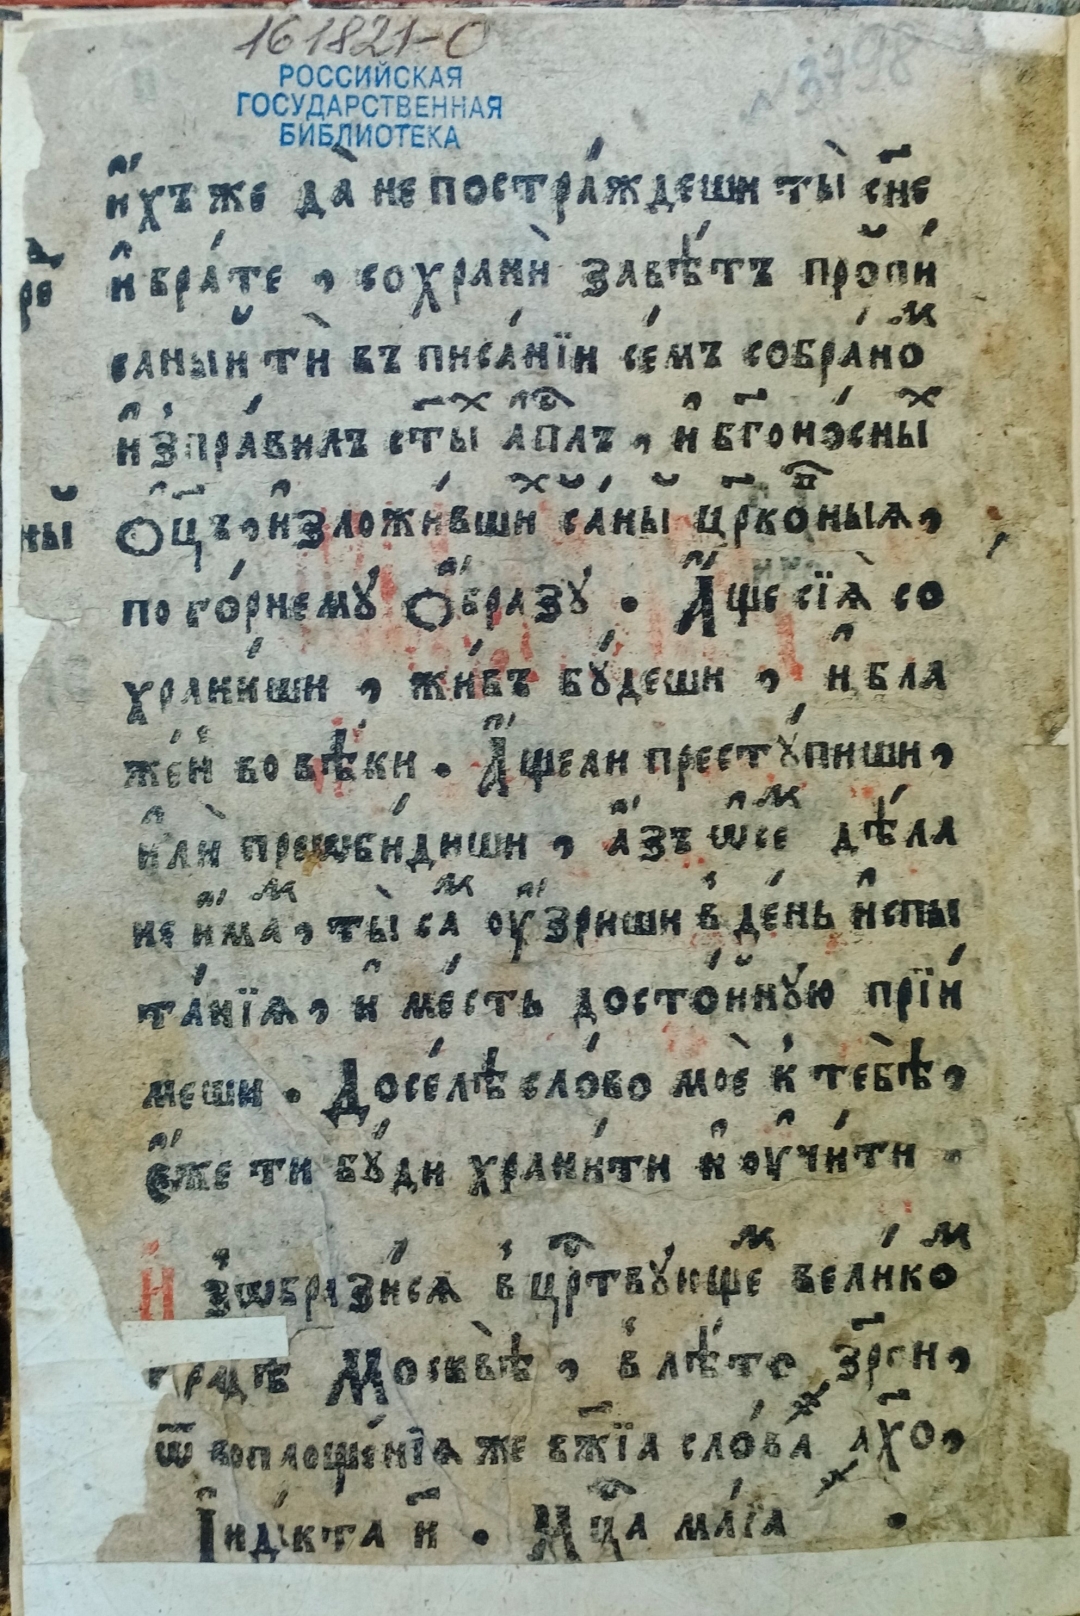 161821-О
№ 3798
РОССИЙСКАЯ
ГОСУДАРСТВЕННАЯ
БИБЛИОТЕКА
и҆́хъже да̀ не постра́ждеши ты̀ сн҃е
и҆ бра́те , сохранѝ завѣ́тъ про́пи
саный тѝ въ писа́нїи се́мъ собра́ноⷨ
и҆ з̾пра́вилъ ст҃ыⷯ а҆пⷭ҇лъ , и҆ бг҃оно́сныⷯ
Ѻ҆ц҃ъ , и҆зложи́вшиⷯ са́ны̆ цр҃ко́ⷡныѧ ,
по го́рнемꙋ Ѻ҆́бразꙋ . А҆́ще сїѧ̀ со
храни́ши , жи́въ бꙋ́деши , и҆ бла
же́нъ во вѣ́ки . А҆́щели престꙋ́пиши ,
и҆лѝ преѡби́диши , а҆́зъ ѡ҆ се́ⷨ дѣ́ла
не и҆́маⷨ , ты̀ саⷨ оу҆́зриши в̾ де́нь и҆спы
та́нїѧ , и҆ ме́сть досто́йнꙋю прїи́
меши . Досе́лѣ сло́во моѐ к̾ тебѣ̀ ,
Є҆́же ти бꙋ́ди храни́ти и҆ оу҆чи́ти .
И з̾ѡбрази́сѧ в̾ црⷭ҇твꙋ́ющеⷨ вели́коⷨ
градѣ Москвѣ̀ , в̾ лѣ́то з҃рпи ,
ѿ воплоще́нїѧ же бж҃їѧ сло́ва ҂ах҃о ,
І҆нді́кта и҃ . Мцⷭ҇а ма́їа .